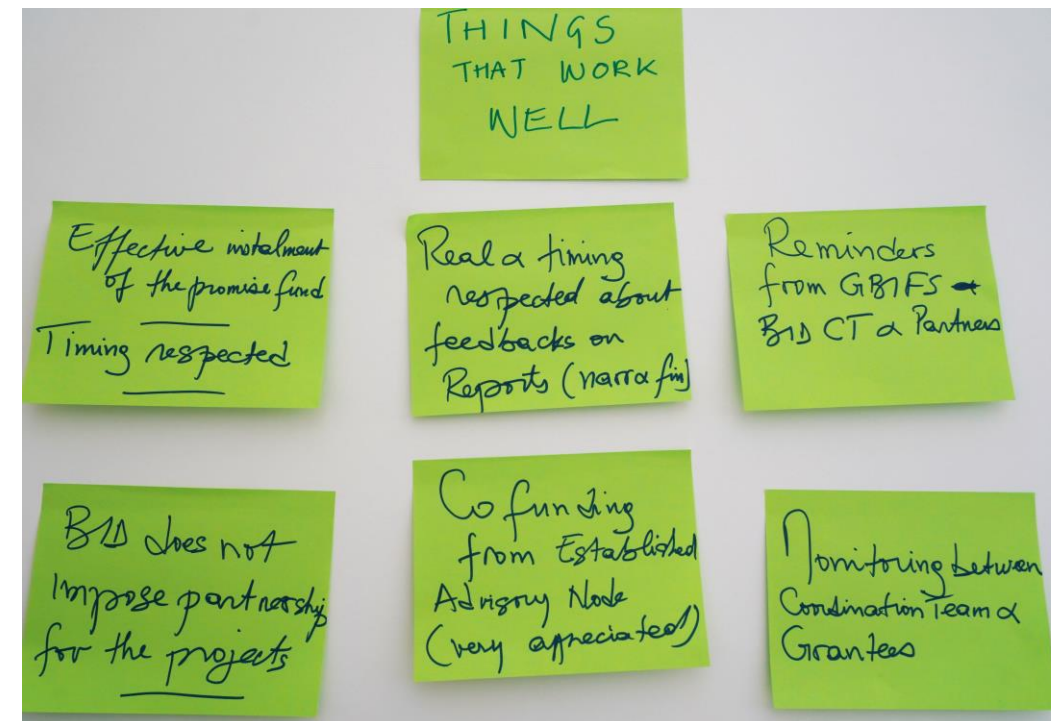 THINGS
THAT WORK
WELL
Effective instalment
of the promise fund
Timing respected
Real & timing
respected about
feedbacks on
Reports (narra fin)
Reminders
from GBIFS
BID CT & Partners
BID does not
Impose partnership
for the projects
Co funding
from Established
Advisory Node
(very appreciated)
Monitoring between
Coordination Team &
Grantees